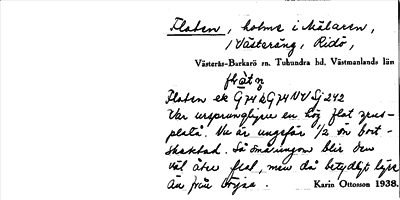 Flaten, holme i Mälaren,
/Västeräng, Ridö,
Västerås-Barkarö sn. Tuhundra hd. Västmanlands län
flàtn
Flaten ek G74 & G74 NV Sj 242
Var ursprungligen en hög flat grus-
platå. Nu är ungefär 1/2 ön bort-
skaktad. Så småningom blir den
väl åter flat, men då betydligt lägre
än från början. Karin Ottosson 1938.